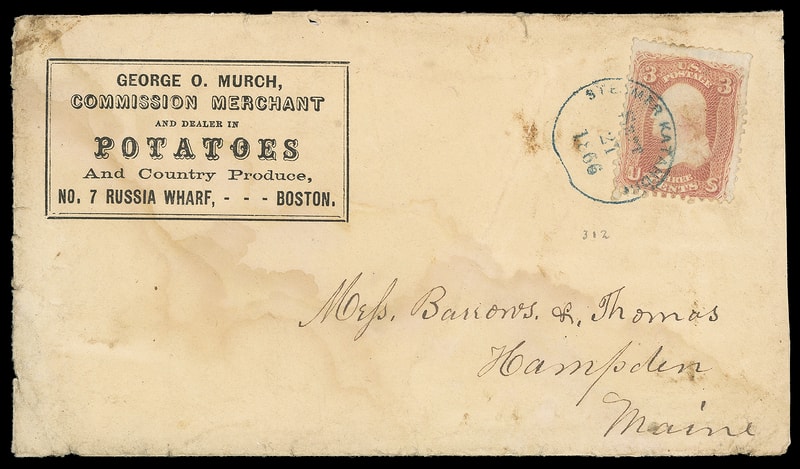 GEORGE O. MURCH,
COMMISSION MERCHANT
AND DEALER IN
POTATOES
And Country Produce,
NO. 7 RUSSIA WHARF, - - - BOSTON.
STEAMER KATAHDIN
21
1866
3 U.S. 3
POSTAGE
U S
THREE
CENTS
312
Mess. Barrows. &. Thomas
Hampden
Maine